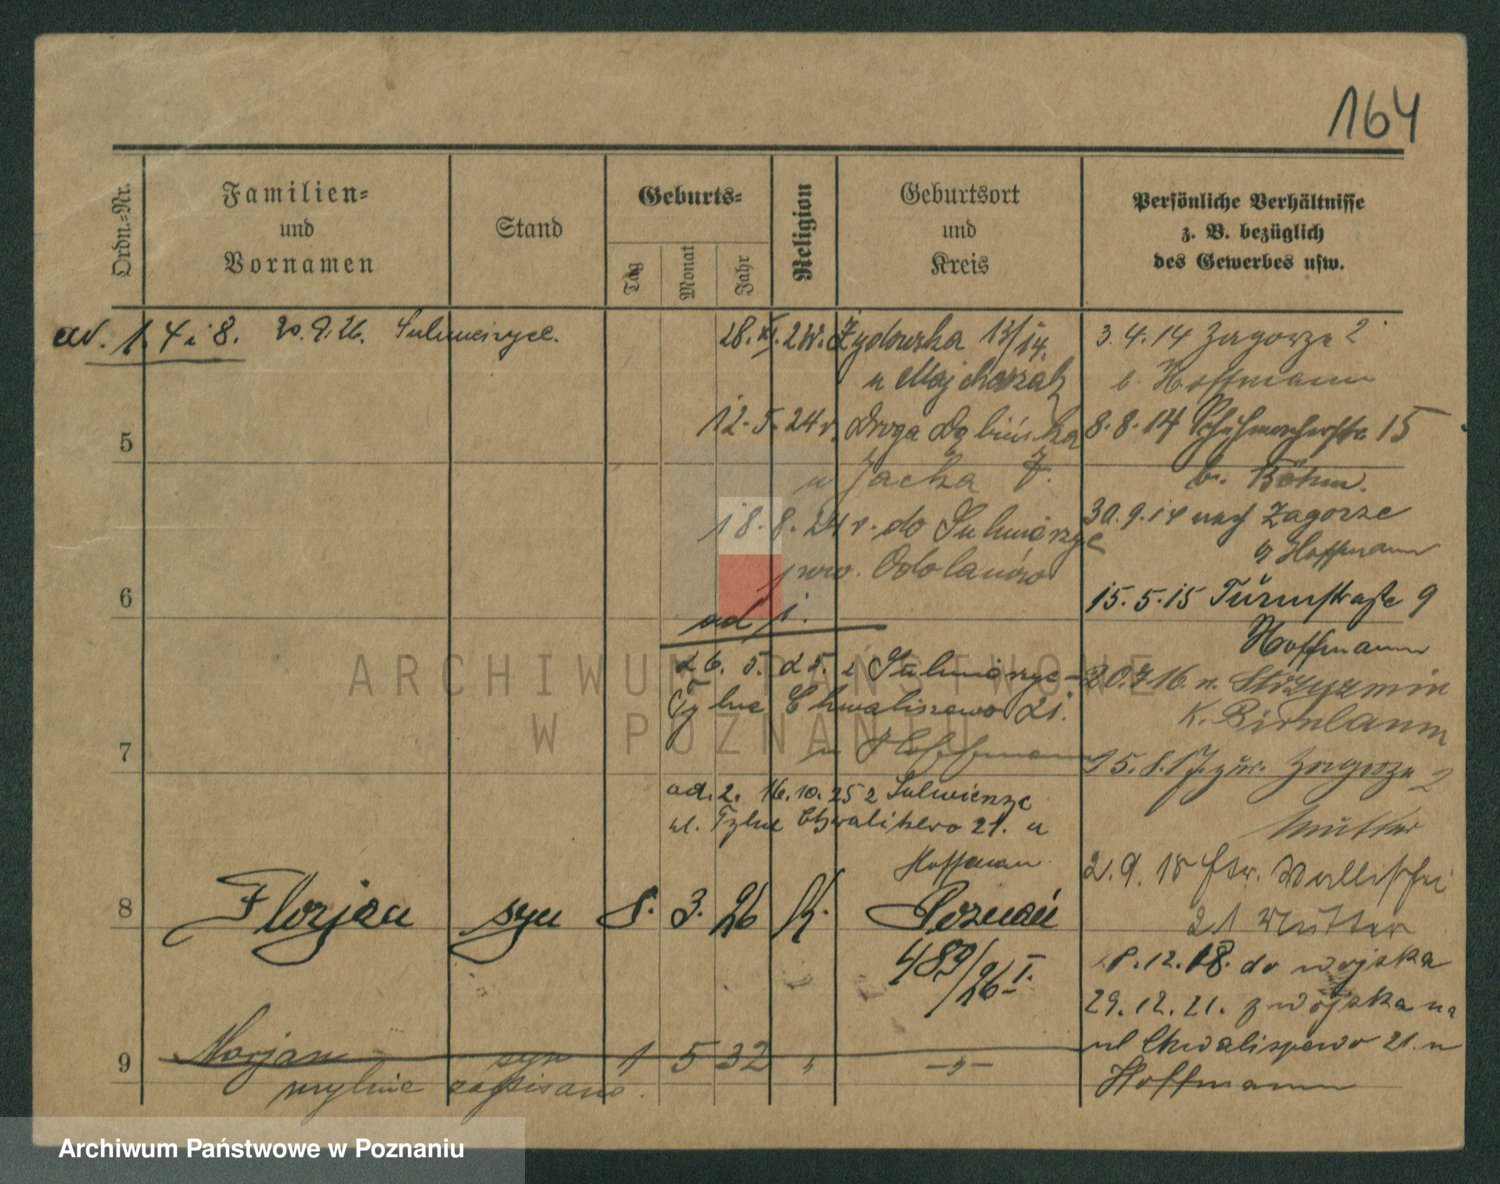 164
Ordn.-Nr.
Familien-
und
Vornamen
Stand
Geburts-
Tag
Monat
Jahr
Religion
Geburtsort
und
Kreis
Persönliche Verhältnisse
z. B. bezüglich
des Gewerbes usw.
ad. 1, 4 i 8. 30.9.26. Sulmierzyce.
28. XI. 23r. Żydowska 13/14.
u Majchrzak
12.5.24 r. Droga Dębińska
u Jacka J.
18.8.24 r. do Sulmierzyc
pow. Odolanów
ad 1.
26. 5. 25. z Sulmierzyc-
Tylne Chwaliszewo 21.
u Hoffmann
ad. 2. 16.10.25 z Sulmierzyc
ul. Tylne Chwaliszewo 21. u
Hoffmann
5
6
7
8 Florjan syn 8. 3. 26 K. Poznań
489/26 I.
9 Marjan syn 1 5 32 " -"-
mylnie zapisano.
3.4.14 Zagorze 2
b. Hoffmann
8.8.14 Schuhmacherstr. 15
b. Böhm.
30.9.14 nach Zagorze
Hoffmann
15.5.15 Turmstraße 9
Hoffmann
20.7.16. n. Strzyzmin
K. Birnbaum
15.8.17. zur. Zagorze 2
Mutter
2.9.18 Wallischei
21 Mutter
12.18. do wojska
29.12.21. z wojska na
ul Chwaliszewo 21. u
Hoffmann
ARCHIWUM PAŃSTWOWE
W POZNANIU
Archiwum Państwowe w Poznaniu